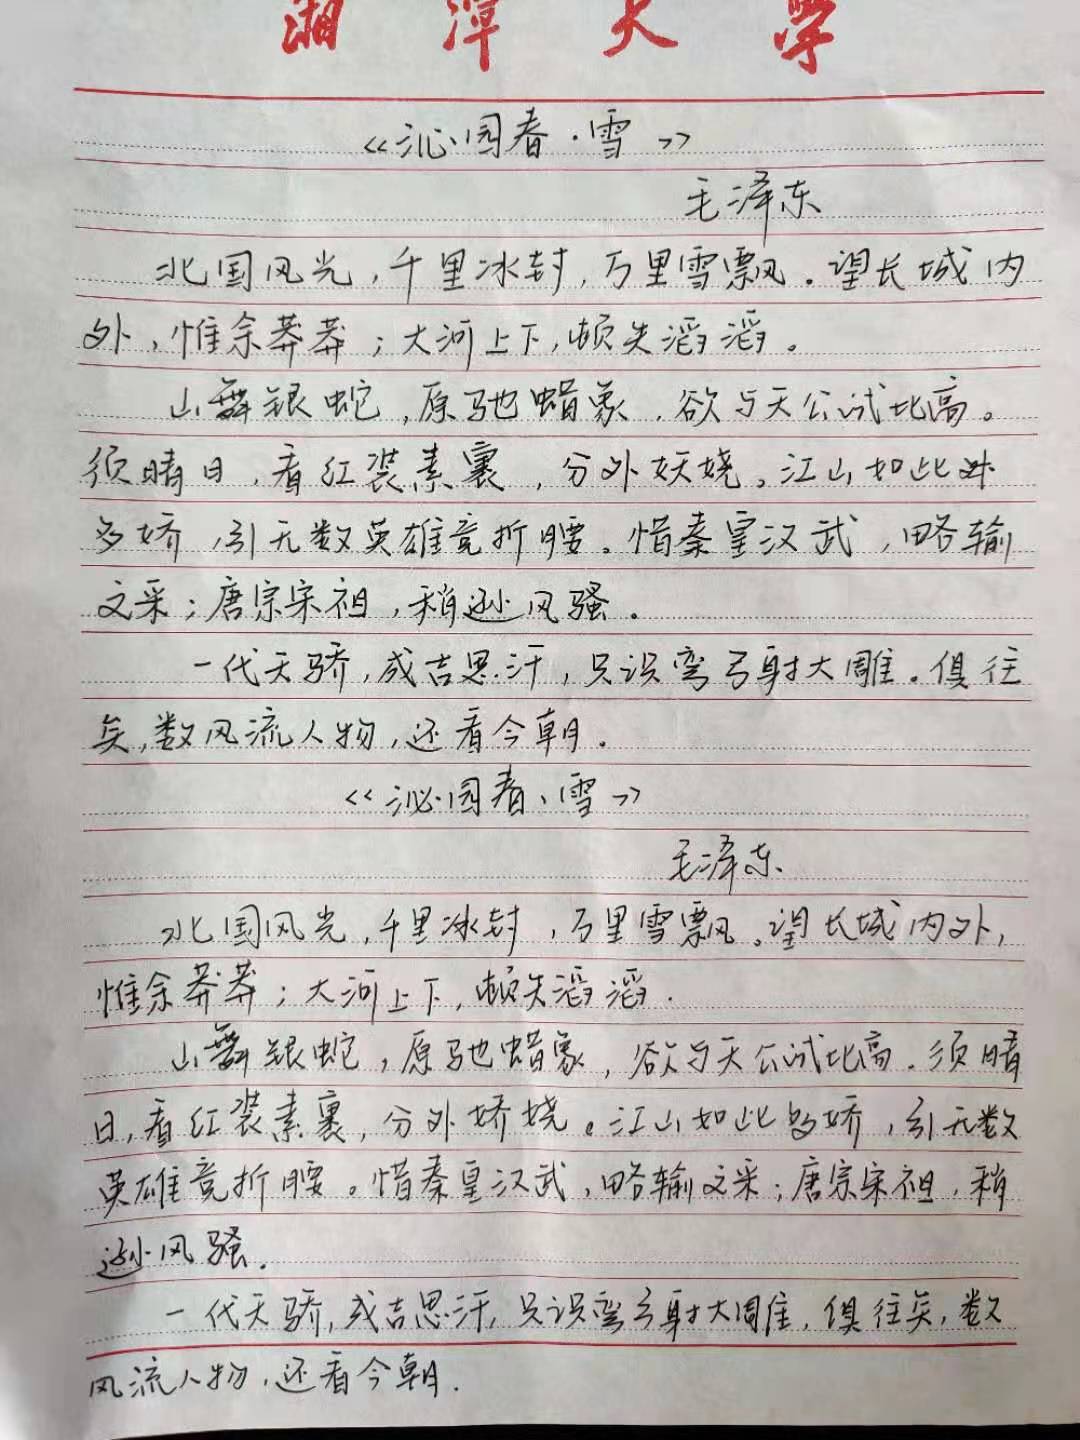 湘潭大学
《沁园春·雪》
毛泽东
北国风光,千里冰封,万里雪飘。望长城内
外,惟余莽莽;大河上下,顿失滔滔。
山舞银蛇,原驰蜡象,欲与天公试比高。
须晴日,看红装素裹,分外妖娆。江山如此
多娇,引无数英雄竞折腰。惜秦皇汉武,略输
文采;唐宗宋祖,稍逊风骚。
一代天骄,成吉思汗,只识弯弓射大雕。俱往
矣,数风流人物,还看今朝.
《沁园春、雪》
毛泽东
北国风光,千里冰封,万里雪飘。望长城内外,
惟余莽莽;大河上下,顿失滔滔.
山舞银蛇,原驰蜡象,欲与天公试比高.须晴
日,看红装素裹,分外娇娆。江山如此多娇,引无数
英雄竞折腰。惜秦皇汉武,略输文采;唐宗宋祖,稍
逊风骚.
一代天骄,成吉思汗,只识弯弓射大雕,俱往矣,数
风流人物,还看今朝.